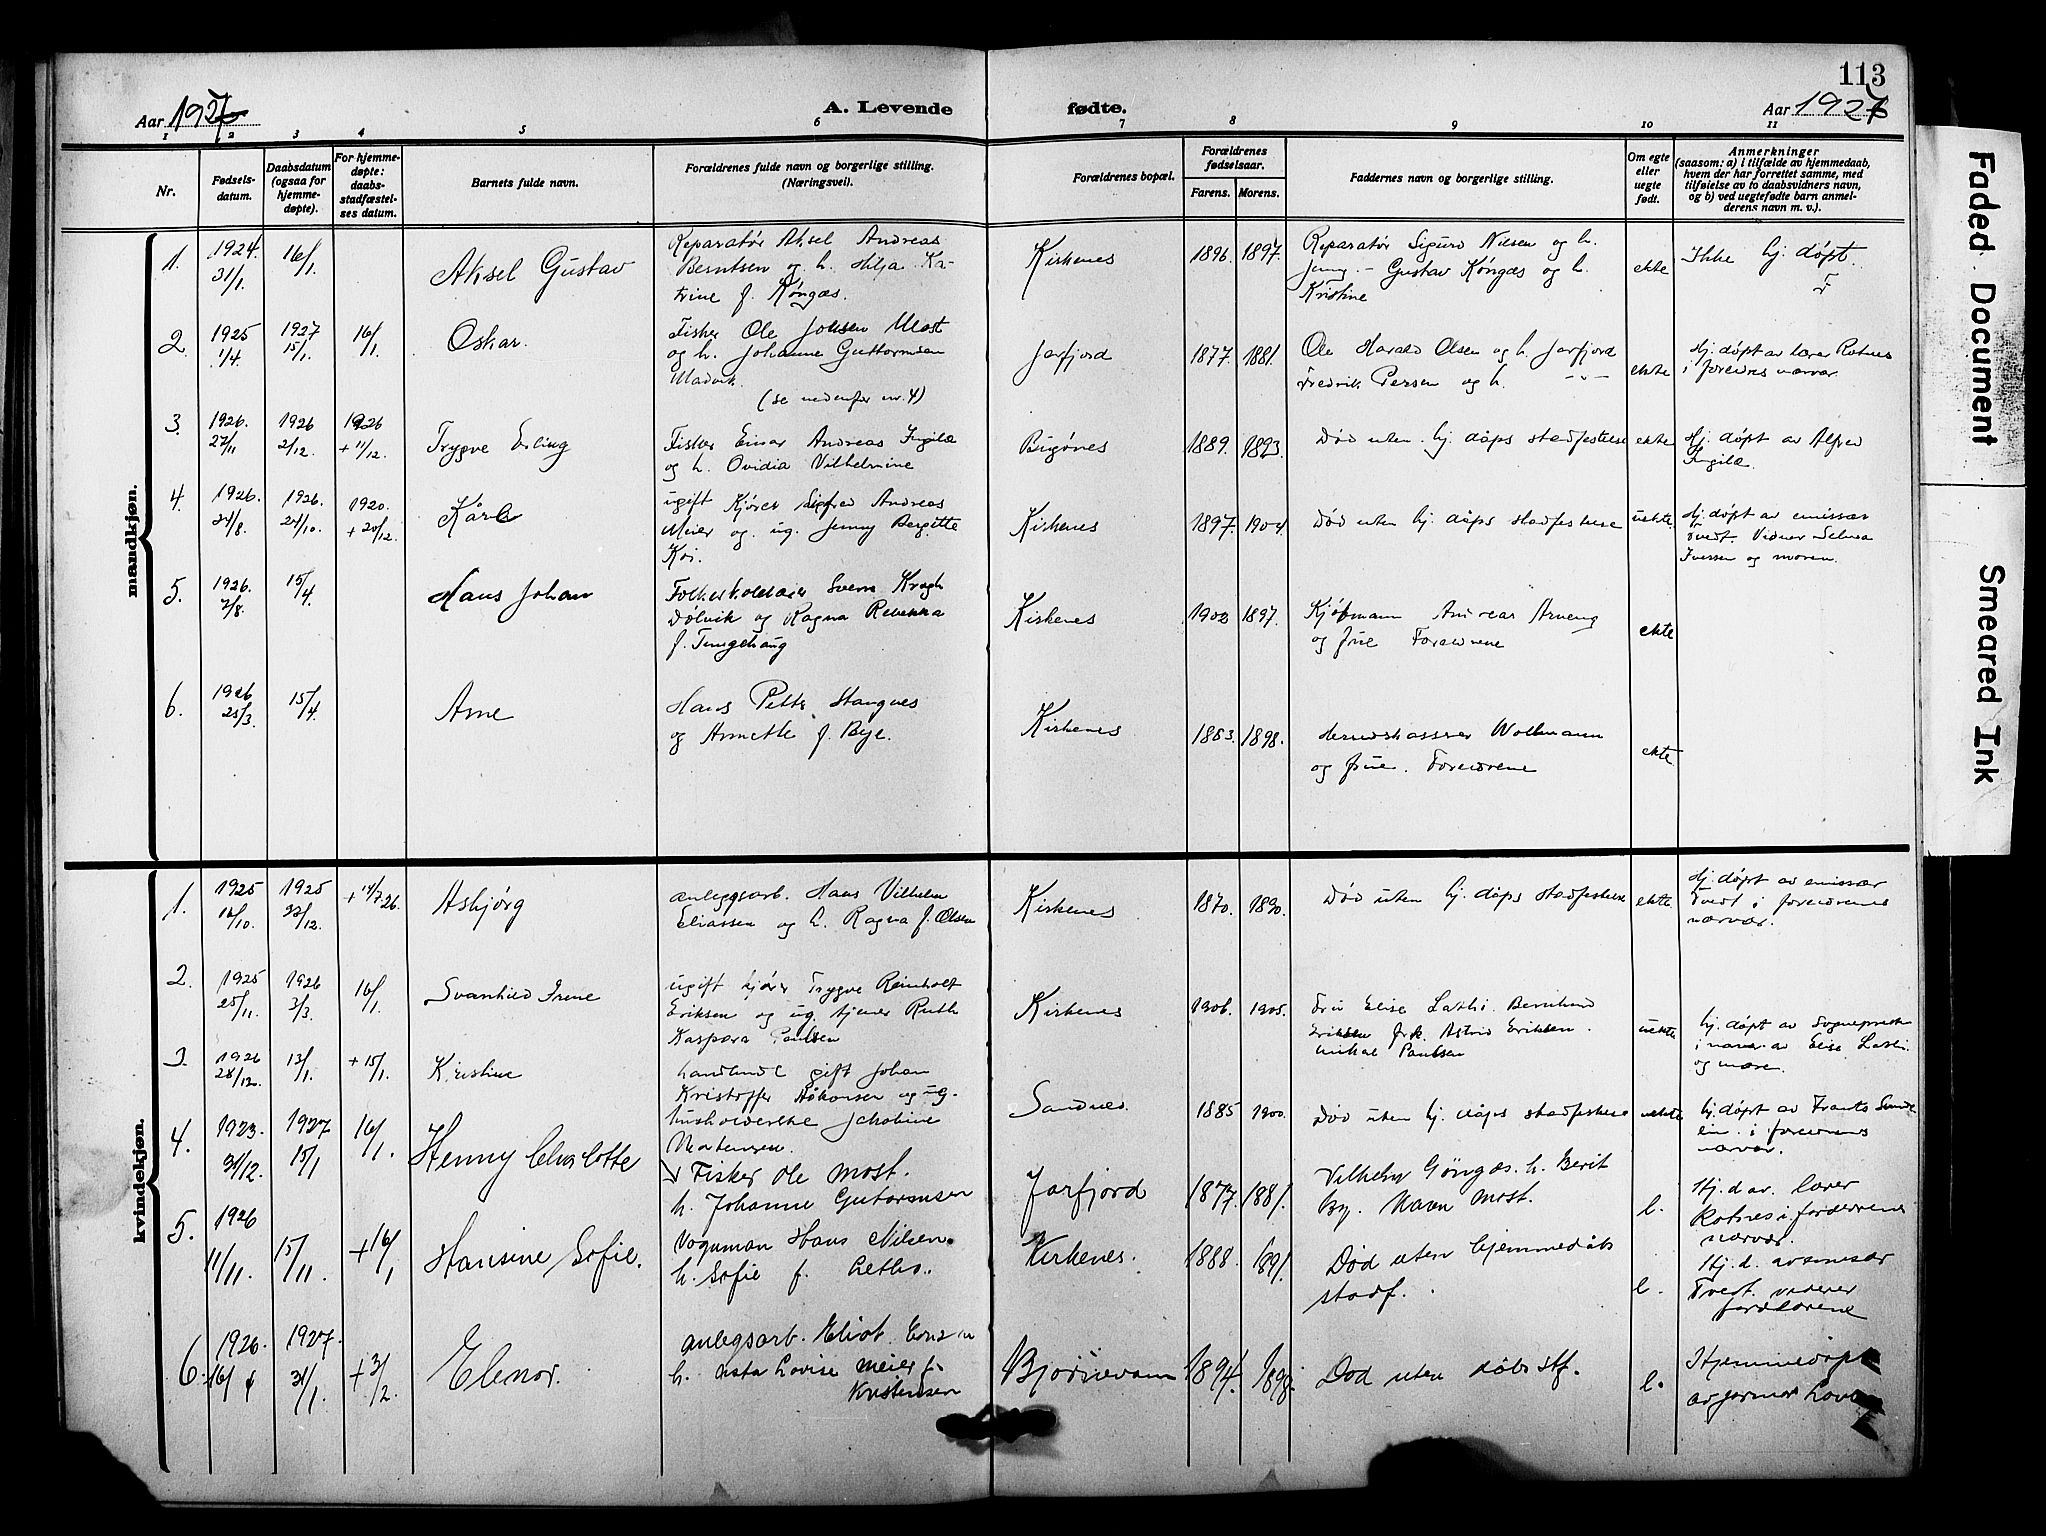 113
Aar 1927
A. Levende fødte.
Aar 1927
1 2 3 4 5 6 7 8 9 10 11
Nr.
Fødsels-
datum.
Daabsdatum
(ogsaa for
hjemme-
døpte).
For hjemme-
døpte:
daabs-
stadfæstel-
ses datum.
Barnets fulde navn.
Forældrenes fulde navn og borgerlige stilling.
(Næringsvei).
Forældrenes bopæl.
Forældrenes
fødselsaar.
Farens. Morens.
Faddernes navn og borgerlige stilling.
Om egte
eller
uegte
født.
Anmerkninger
(saasom: a) i tilfælde av hjemmedaab,
hvem der har forrettet samme, med
tilføielse av to daabsvidners navn,
og b) ved uegtefødte barn anmel-
derens navn m. v.).
mandkjøn.
1. 1924. 31/1. 16/1. Aksel Gustav
Reparatør Aksel Andreas
Berntsen og h. Hilja Ka-
trine f. Køngæs.
Kirkenes 1896. 1897.
Reparatør Sigurd Nilsen og h.
Jenny - Gustav Køngæs og h.
Kristine
ekte
Ikke hj. døpt.
2. 1925 1/4. 1927 15/1. 16/1. Oskar.
Fisker Ole Johsen Most
og h. Johanne Guttormsen
(se nedenfor nr. 4)
Jarfjord 1877. 1881.
Ole Harald Olsen og h. Jarfjord
Fredrik Persen og h. -"-
ekte
Hj. døpt av lærer Rotnes
i foreldres nærvær.
3. 1926. 27/11 1926 2/12. 1926 + 11/12. Trygve Erling
Fisker Einar Andreas Ingilæ
og h. Ovidia Vilhelmine
Bugønes 1889. 1893.
Død uten hj. dåps stadfestelse
ekte
Hj. døpt av Alfred
Ingilæ.
4. 1926. 24/8. 1926. 24/10. 1920. + 20/12. Kåre
ugift Kjører Sigfred Andreas
Meier og ug. Jenny Bergitte
Koi.
Kirkenes 1897. 1904.
Død uten hj. dåps stadfestelse
uekte
Hj. døpt av emissær
Tvedt. Vidner Selma
Iversen og moren.
5. 1926. 7/8. 15/4. Hans Johan
Sverre Krogh
Dølvik og Ragna Rebekka
f. Tungehaug
Kirkenes 1902 1897.
Kjøbmann Andreas Arneng
og frue Foreldrene
ekte
6. 1926 25/3. 15/4. Arne
Hans Petter Stangnes
og Annette f. Bye.
Kirkenes 1883. 1898.
Herredskasserer Wollmann
og frue. Foreldrene
ekte
kvindekjøn.
1. 1925 16/10. 1925 28/12. + 14/7 26. Asbjørg
anleggsarb. Hans Vilhelm
Eliassen og h. Ragna f. Olsen
Kirkenes 1870. 1890.
Død uten hj. dåps stadfestelse
ekte
Hj. døpt av emissær
Tvedt i foreldrenes
nærvær.
2. 1925 25/11. 1926 3/3. 16/1. Svanhild Irene
ugift kjører Trygve Reinholt
Eriksen og ug. tjener Ruth
Kaspara Paulsen
Kirkenes 1906. 1905.
Fru Elise Lasli. Bernhard
Eriksen frk. Astrid Eriksen.
Mikal Paulsen
uekte
hj. døpt av Sogneprest
i nærv. av Elise Lasli
og moren.
3. 1926 28/12. 13/1. + 15/1. Kristine
handlende gift Johan
Kristoffer Håkonsen og ug.
husholderske Jakobine
Mortensen
Sandnes. 1885 1900.
Død uten hj. dåps stadfestelse
uekte
hj. døpt av Frants
i foreldrenes
nærvær.
4. 1923. 31/12. 1927 15/1 16/1. Henny Charlotte
Fisker Ole Most.
h. Johanne Gutormsen
Jarfjord 1877. 1881.
Vilhelm Göngæs. h. Berit
By. Navn Most.
e.
Hj. d av. lærer
Rotnes i forældrenes
nærvær.
5. 1926 11/11. 15/11. + 16/1 Hansine Sofie.
Vognman Hans Nilsen.
h. Sofie f.
Kirkenes. 1888. 1891.
Død uten hjemmedåbs
stadf.
e.
Hj. d. av emisær
Tvedt. vidner
forældrene
6. 1926. 16/ 1927. 31/1. + 3/2. Elenor.
Anlegsarb. Eliot
h. Asta Lovise Meier f.
Kristensen
Bjørnevann 1894. 1898.
Død uten dåbs stf.
e.
Hjemmedøpt
av jormor
Faded Document
Smeared Ink